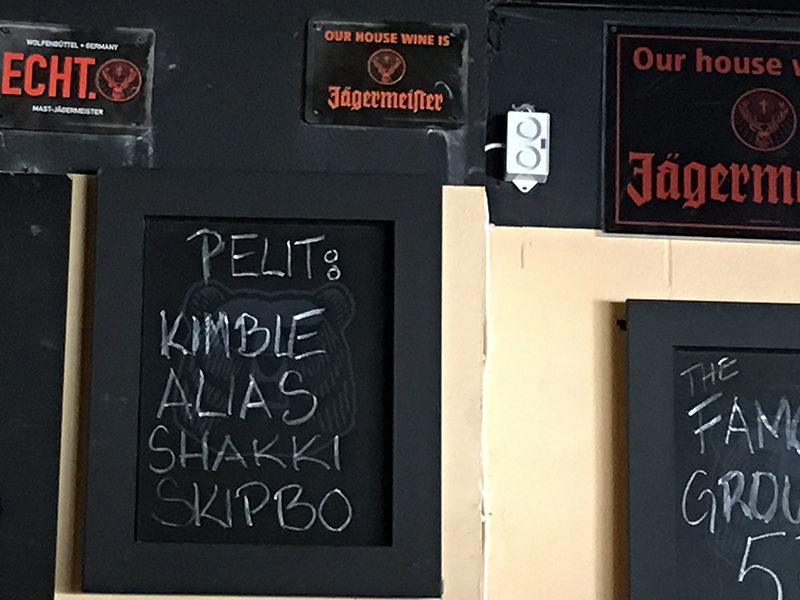 WOLFENBÜTTEL • GERMANY
ECHT.
MAST-JÄGERMEISTER
OUR HOUSE WINE IS
Jägermeister
Our house
Jägerm
PELIT:
KIMBLE
ALIAS
SHAKKI
SKIPBO
THE
FAM
GROU
5